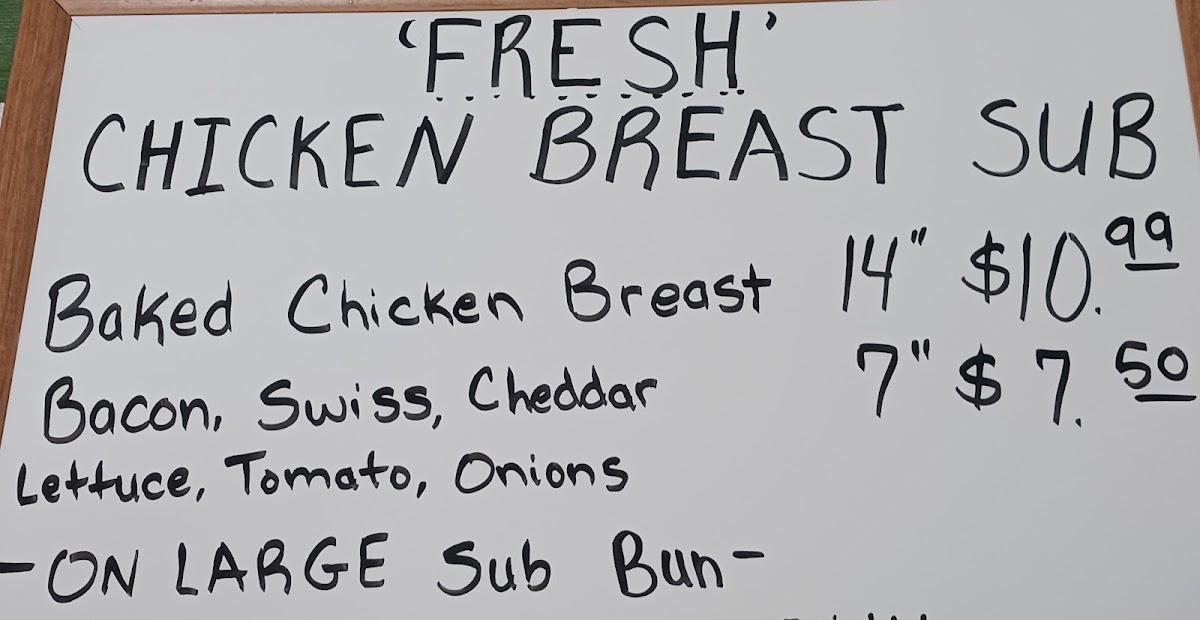 'FRESH'
CHICKEN BREAST SUB
Baked Chicken Breast 14" $10.99
Bacon, Swiss, Cheddar 7" $7.50
Lettuce, Tomato, Onions
-ON LARGE Sub Bun-